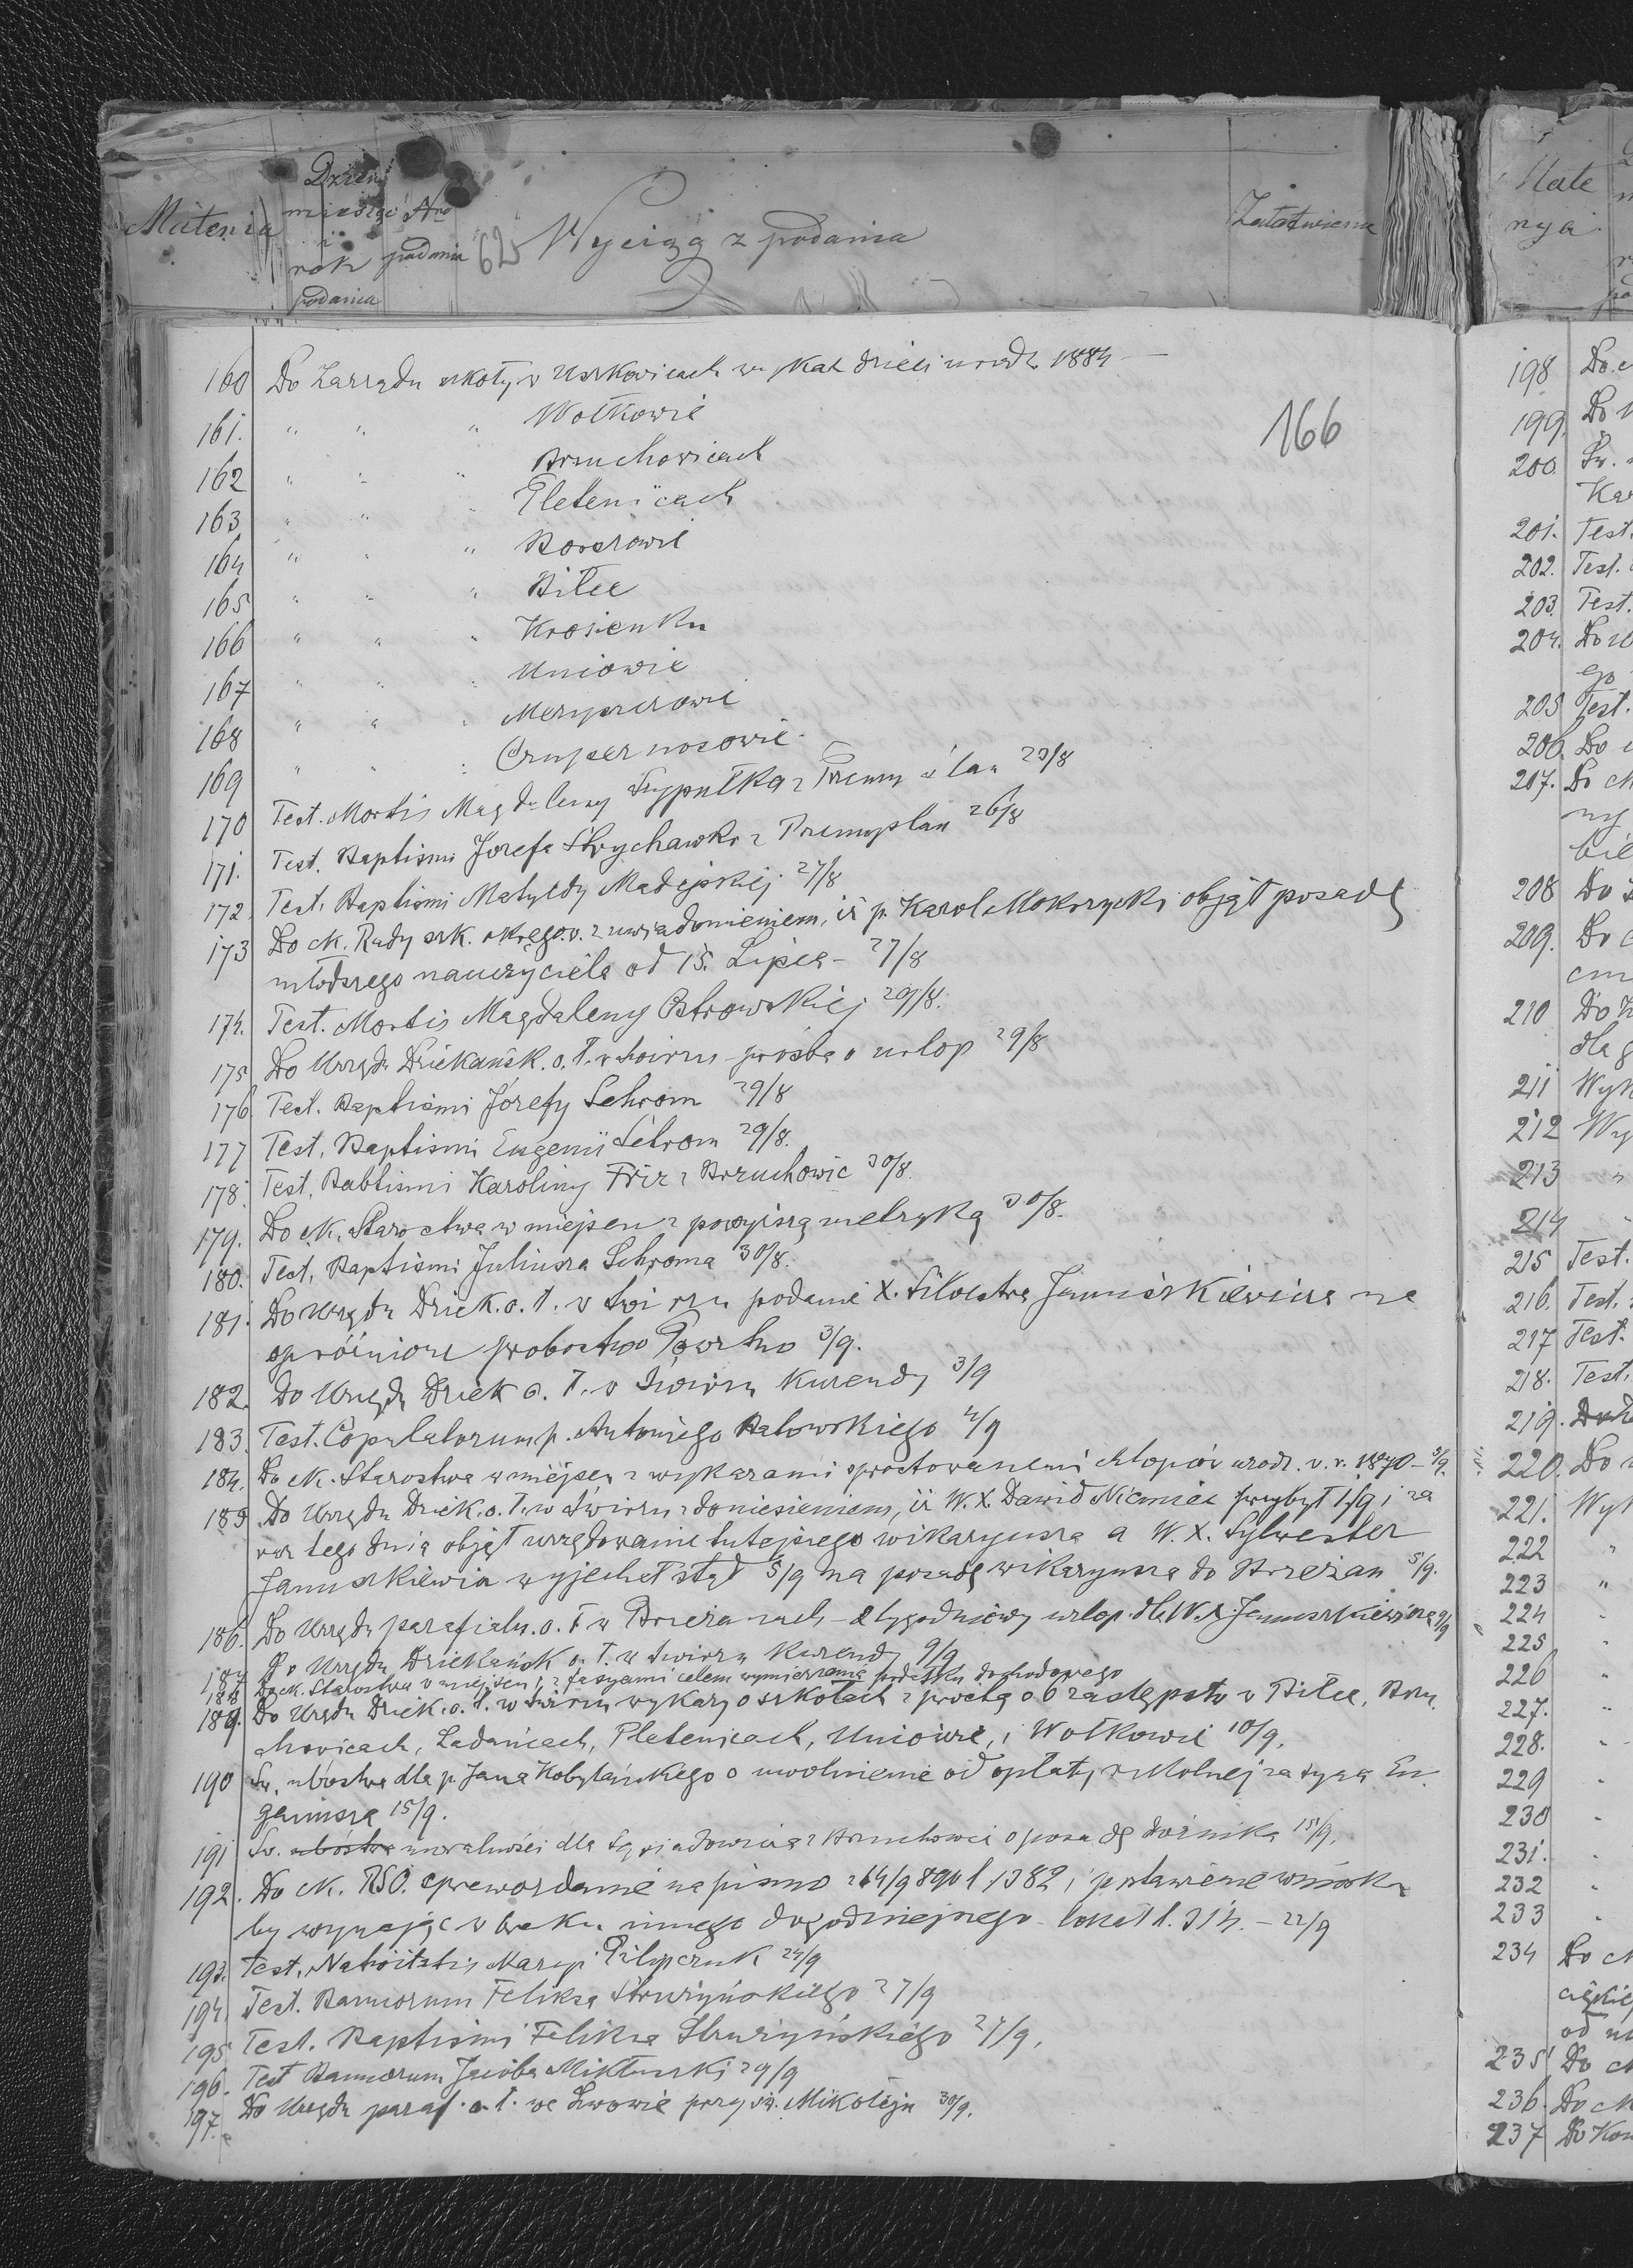 Materia
Dzień
miesiąc
i
rok
podania
Nro
podania
62
Wyciąg z podania
Załatwienie
Mate
rya
166
160 Do Zarządu szkoły w Uszkowicach wykaz dzieci urodz. 1884 —
161. " " " Wołkowie
162 " " " Brzuchowicach
163 " " " Pletenicach
164 " " " Borszowie
165 " " " Bitce
166 " " " Krosienku
167 " " " Uniowie
168 " " " Meryszczowie
169 " " " Czupernosowie
170 Test. Mortis Magdaleny z Przemyślan 23/8
171. Test. Baptismi Józefa Strychawka z Przemyślan 26/8
172. Test. Baptismi Matyldy Madejskiej 27/8
173 Do ck. Rady szk. okręgow. z uwiadomieniem, iż p. Karol Mokrzycki objął posadę
młodszego nauczyciela od 15. Lipca - 27/8
174. Test. Mortis Magdaleny Ostrowskiej 29/8.
175 Do Urzędu Dziekańsk. o. ł. w Świrzu prośba o urlop 29/8
176. Test. Baptismi Józefy Schrom 29/8
177 Test. Baptismi Eugenii Schrom 29/8.
178. Test. Babtismi Karoliny Fřiz z Brzuchowic 30/8.
179. Do ck. Starostwa w miejscu z powyższą metryką 30/8.
180. Test. Baptismi Juliusza Schroma 30/8.
181. Do Urzędu Dziek. o. ł. w Świrzu podanie X. Silvestra Januszkiewicza na
opróżnione probostwo 3/9.
182. Do Urzędu Dziek o. ł. w Świrzu Kurendy 3/9
183. Test. Copulatorum p. Antoniego Batowskiego 4/9
184. Do ck. Starostwa w miejscu z wykazami sprostowanemi chłopców urodz. w r. 1870 - 5/9.
185 Do Urzędu Dziek. o. ł. w Świrzu z doniesieniem, iż W. X. Dawid Niemiec przybył 1/9 i za
raz tego dnia objął urzędowanie tutejszego wikaryusza a W. X. Sylwester
Januszkiewicz wyjechał stąd 5/9 na posadę wikaryusza do Brzeżan 5/9.
186. Do Urzędu parafialn. o. ł. w Brzeżanach - 2 tygodniowy urlop dla W. X Januszkiewicza 9/9
187 Do Urzędu Dziekańsk o. ł. w Świrzu Kurendy 9/9
188 Do ck. Starostwa w miejscu z fasyami celem wymierzenia podatku dochodowego
189. Do Urzędu Dziek. o. ł. w Świrzu wykazy o szkołach z prośbą o 6 zastępstw w Bitce, Brzu
chowicach, Ładańcach, Pletenicach, Uniowie, i Wołkowie 10/9.
190 Św. ubóstwa dla p. Jana Kobylańskiego o uwolnienie od opłaty szkolnej za syna Eu
geniusza 15/9.
191 Św. ubóstwa moralności dla z Brzuchowic o posadę dróżnika 15/9.
192. Do ck. RSO. sprawozdanie na pismo z 14/9 890 l. 1382 i postawienie wniosku
by wynająć w braku innego dogodniejszego lokal l. 314. - 22/9
193. Test. Nativitatis Maryi Pilipczuk 24/9
194. Test. Bannorum Feliksa Struzyńskiego 27/9
195 Test. Baptismi Feliksa Struzyńskiego 27/9.
196. Test Bannorum Jacóba 29/9
197. Do Urzędu paraf. o. ł. we Lwowie przy św. Mikołaju 30/9.
198
199.
200
201. Test.
202. Test.
203. Test.
204.
205 Test.
206. Do
207. Do
208 Do
209. Do
210
211 Wyk
212 Wy
213 "
214
215 Test.
216. Test.
217 Test.
218. Test.
219.
220. Do
221. Wyk
222 "
223 "
224
225
226 "
227. "
228.
229
230
231.
232
233
234 Do
235 Do
236. Do
237 Do